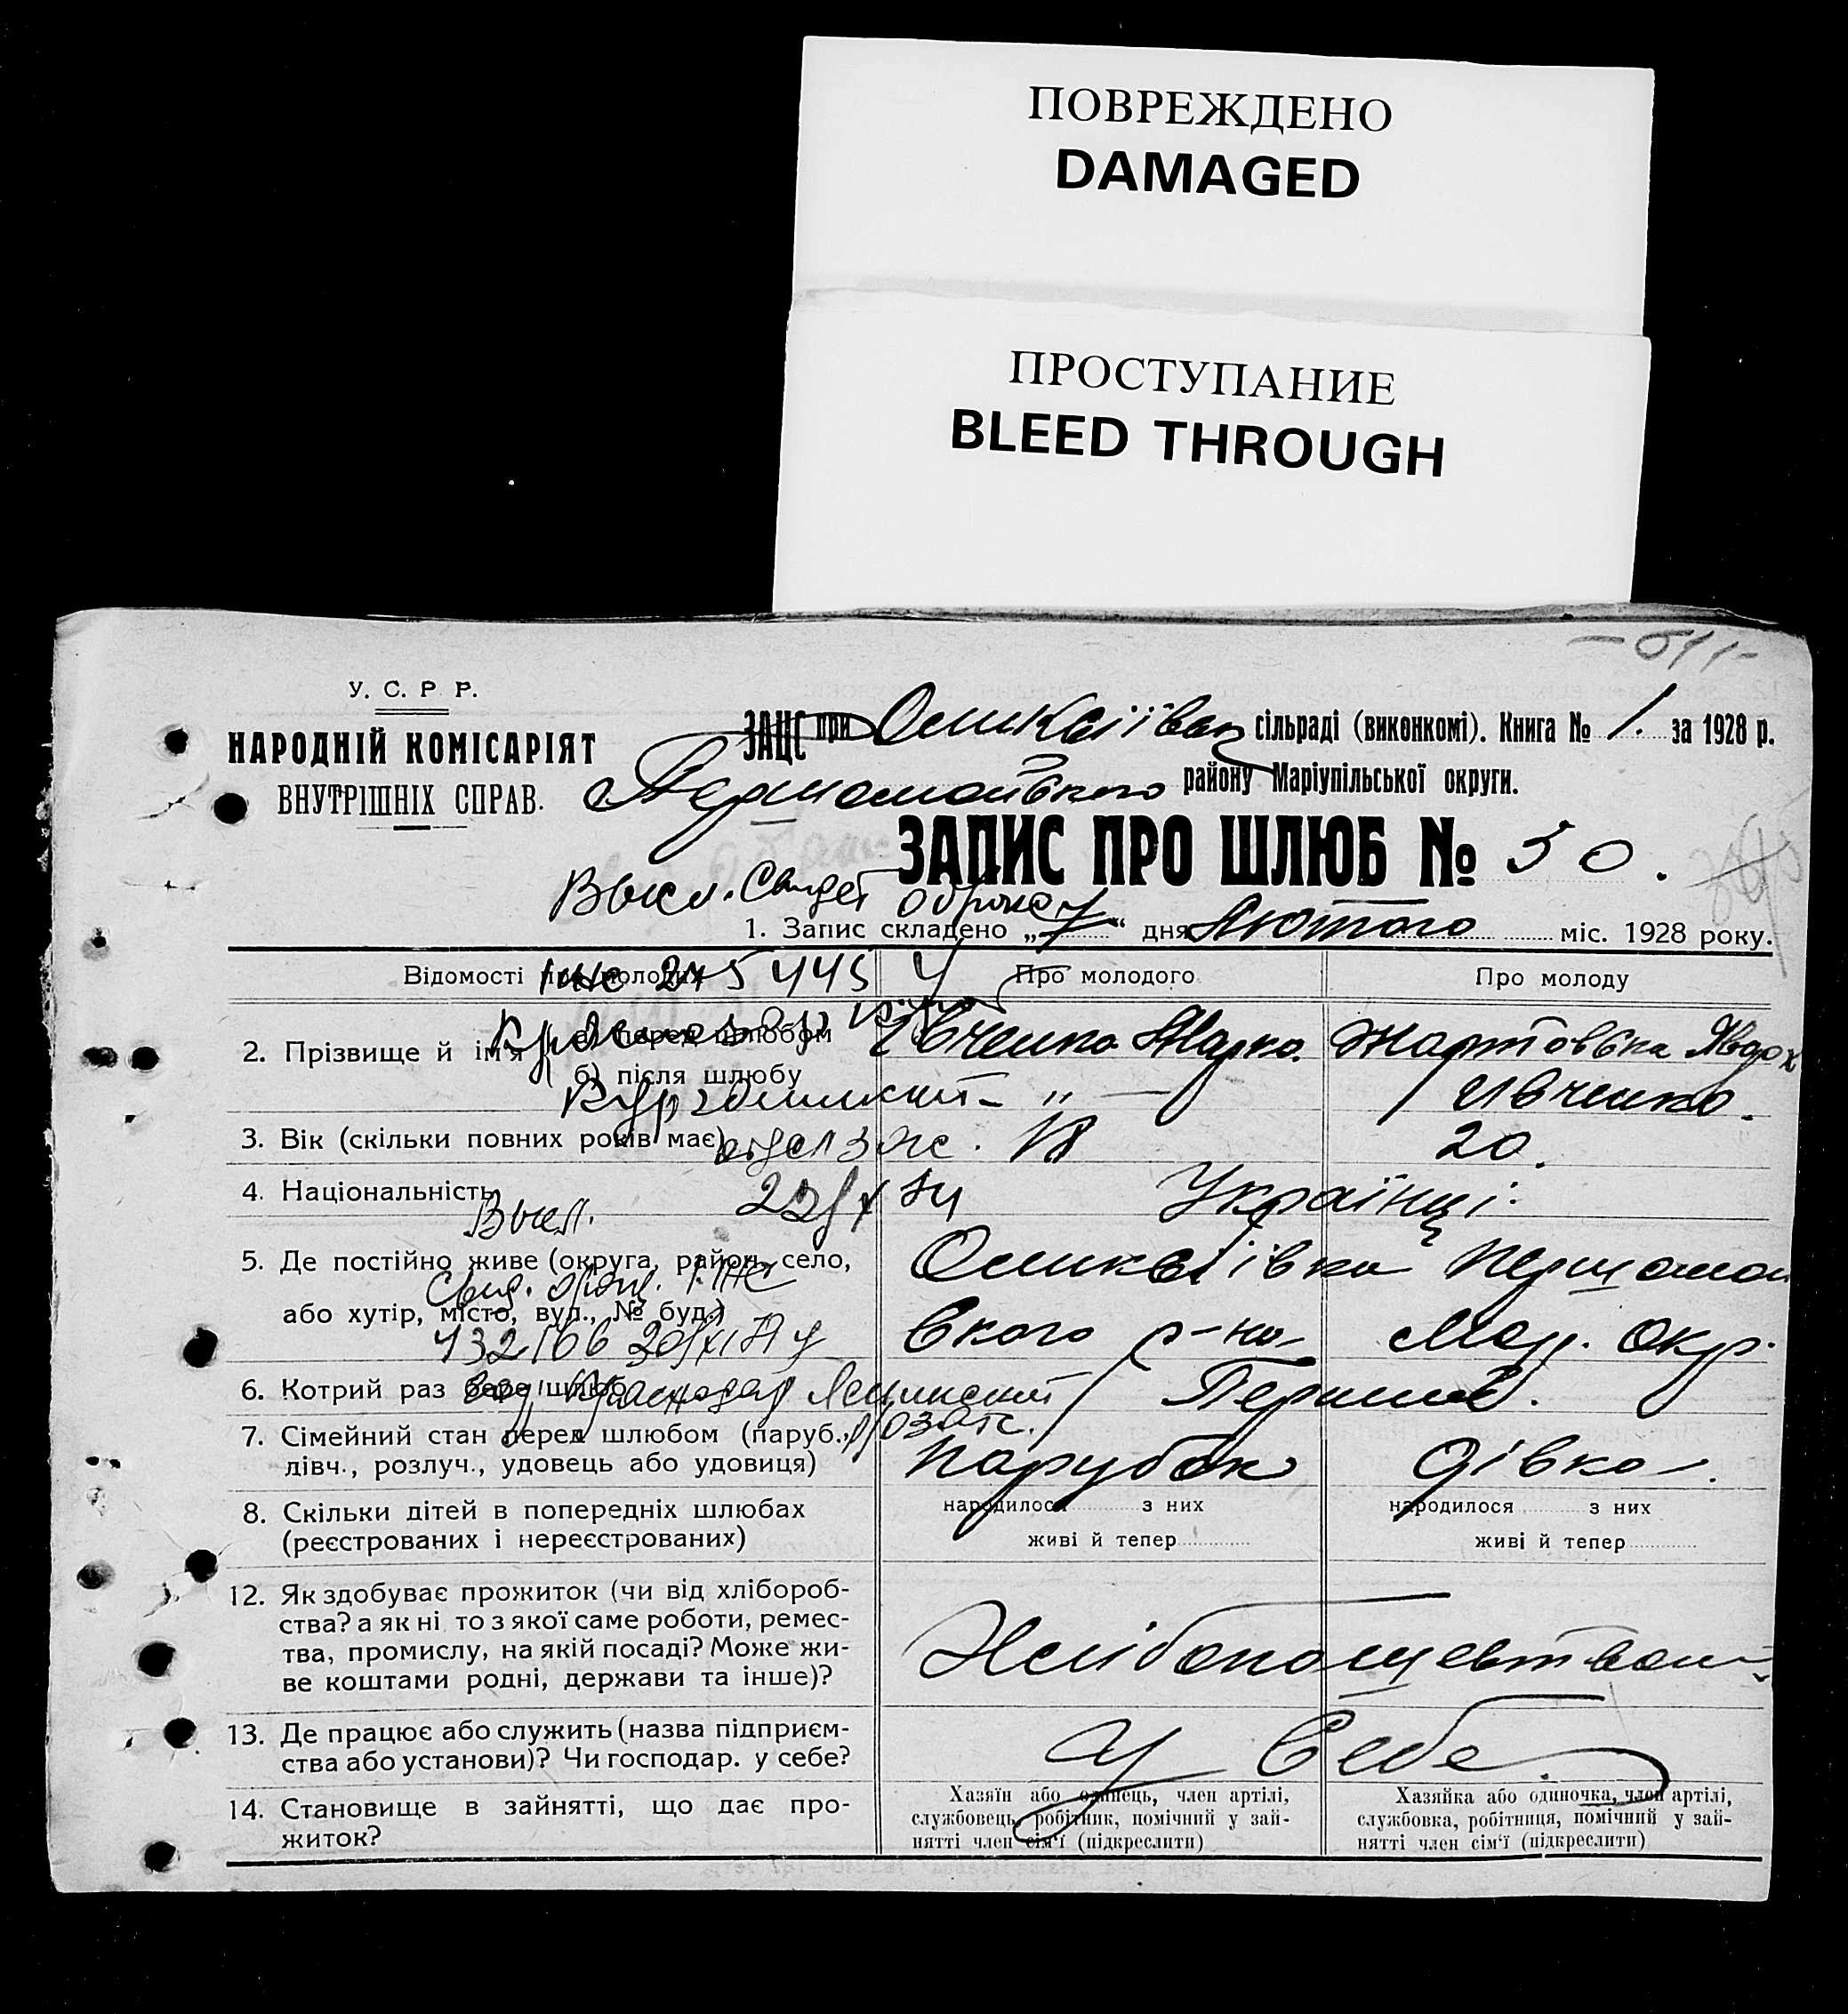 ПОВРЕЖДЕНО
DAMAGED
ПРОСТУПАНИЕ
BLEED THROUGH
У. С. Р. Р.
НАРОДНІЙ КОМІСАРІЯТ
ВНУТРІШНІХ СПРАВ.
ЗАЦС при сільраді (виконкомі). Книга № 1. за 1928 р.
Першомайського району Маріупільської округи.
ЗАПИС ПРО ШЛЮБ № 50.
1. Запис складено „7“ дня Лютого міс. 1928 року.
Відомості про молодих
Про молодого
Про молоду
2. Прізвище й ім'я
а) перед шлюбом
Івченко Марко.
Жартовська Явдох
б) після шлюбу
— „ —
Івченко.
3. Вік (скільки повних років має)
18
20.
4. Національність
Українці.
5. Де постійно живе (округа, район, село,
або хутір, місто, вул., № буд.)
Першомай
ського р-на Мар. Окр.
6. Котрий раз бере шлюб
Перший.
7. Сімейний стан перед шлюбом (паруб.,
дівч., розлуч., удовець або удовиця)
Парубок
Дівка.
8. Скільки дітей в попередніх шлюбах
(реєстрованих і нереєстрованих)
народилося з них
живі й тепер
народилося з них
живі й тепер
12. Як здобуває прожиток (чи від хлібороб-
ства? а як ні то з якої саме роботи, ремес-
тва, промислу, на якій посаді? Може жи-
ве коштами родні, держави та інше)?
13. Де працює або служить (назва підприєм-
ства або установи)? Чи господар. у себе?
У Себе.
14. Становище в зайнятті, що дає про-
житок?
Хазяїн або одинець, член артілі,
службовець, робітник, помічний у зай-
нятті член сім'ї (підкреслити)
Хазяйка або одиночка, член артілі,
службовка, робітниця, помічний у зай-
нятті член сім'ї (підкреслити)